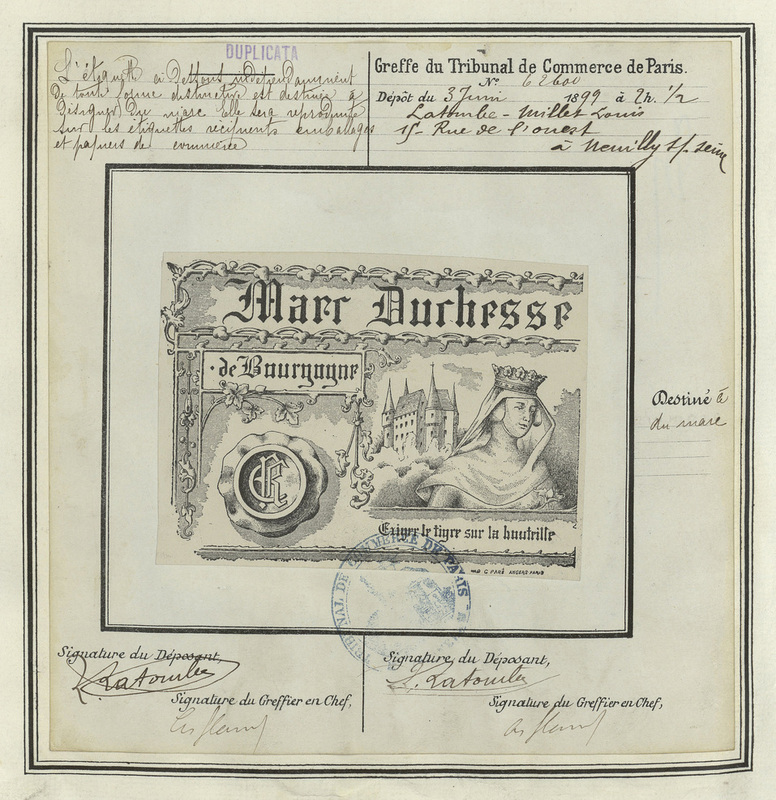 DUPLICATA
L'étiquette ci Dessous indépendamment
de toute forme distinctive est destinée à
Désigner Du marc Elle sera reproduite
sur les étiquettes récipients emballages
et papiers de commerce
Greffe du Tribunal de Commerce de Paris.
N° 62600
Dépôt du 3 Juin 1899 à 2h. 1/2
Latombe-Millet Louis
15- Rue de l'ouest
à Neuilly s/. seine
Marc Duchesse
de Bourgogne
Exiger le tigre sur la bouteille
IMP G PARÉ ANGERS-PARIS
TRIBUNAL DE COMMERCE DE PARIS
Destiné à
du marc
Signature du Déposant,
Latombe
Signature du Greffier en Chef,
Signature du Déposant,
L. Latombe
Signature du Greffier en Chef,